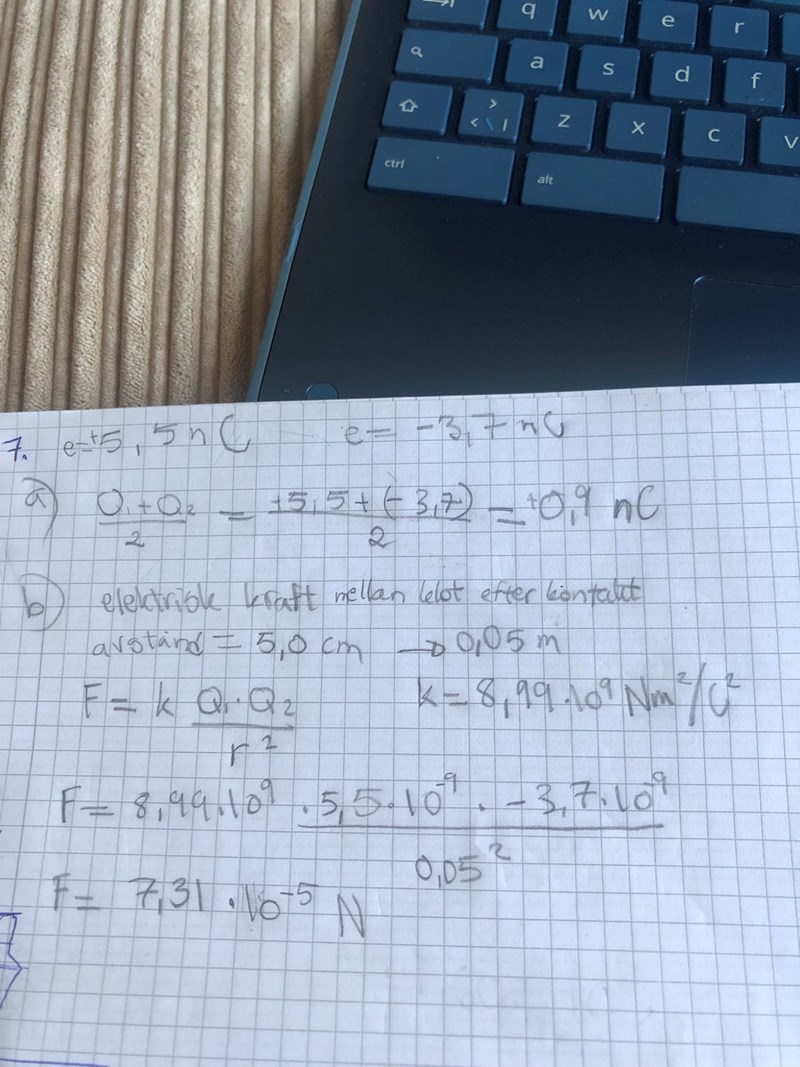 q w e r
a s d f
> < \ | z x c v
ctrl alt
7. e=+5,5nC e= -3,7nC
a) Q1+Q2/2 = +5,5+(-3,7)/2 = +0,9 nC
b) elektrisk kraft mellan klot efter kontakt
avstånd = 5,0 cm → 0,05 m
F= k Q1·Q2/r² k=8,99·10⁹ Nm²/C²
F= 8,99·10⁹ ·5,5·10⁻⁹ · -3,7·10⁻⁹/0,05²
F= 7,31·10⁻⁵ N